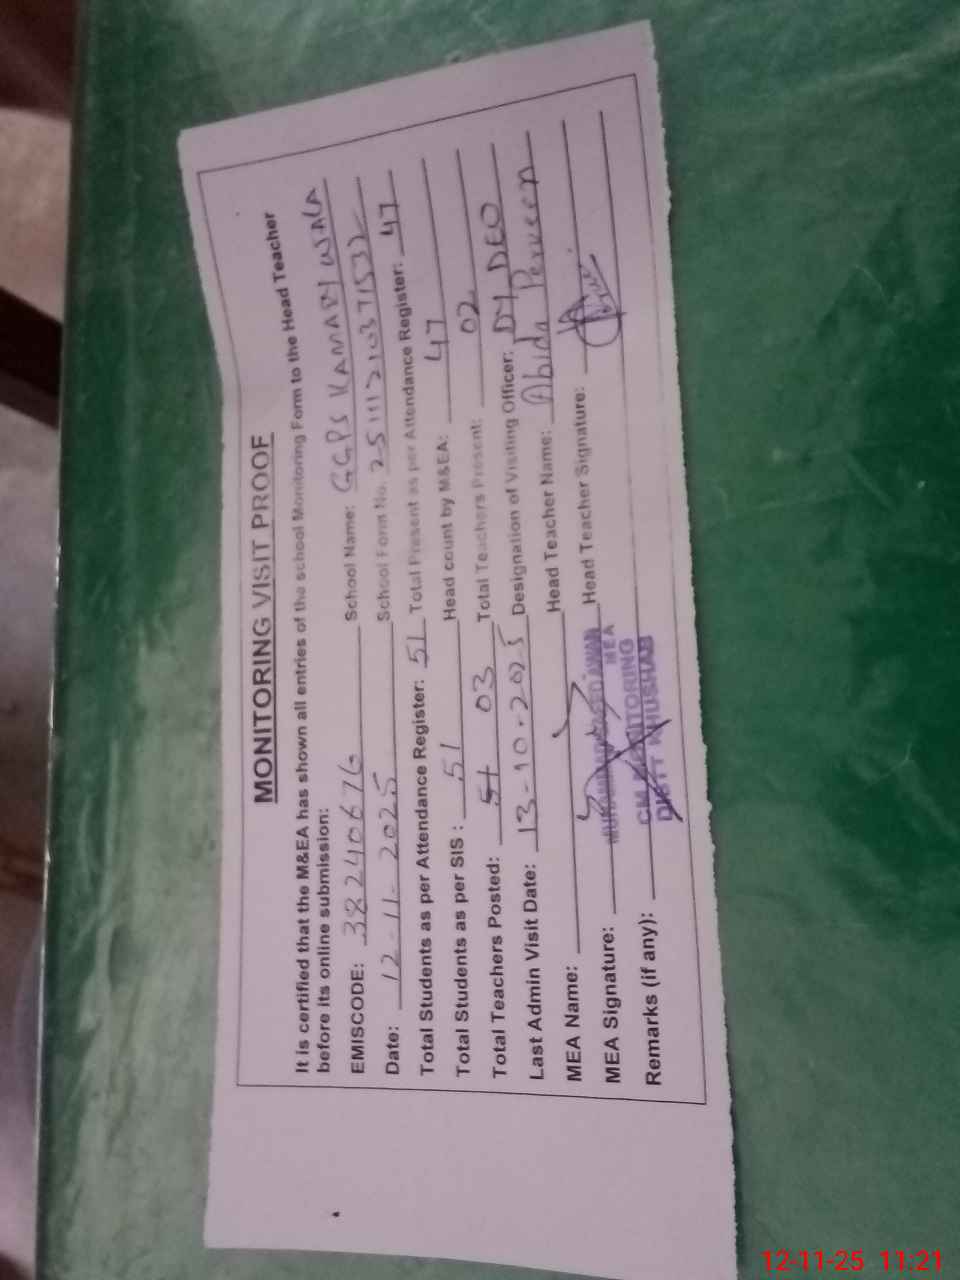 MONITORING VISIT PROOF
It is certified that the M&EA has shown all entries of the school Monitoring Form to the Head Teacher
before its online submission:
EMISCODE: 38240676 School Name: GGPS KAMABY WALA
Date: 12-11-2025 School Form No. 25111210371532
Total Students as per Attendance Register: 51 Total Present as per Attendance Register: 47
Total Students as per SIS : 51 Head count by M&EA: 47
Total Teachers Posted: 03 Total Teachers Present: 02
Last Admin Visit Date: 13-10-2025 Designation of Visiting Officer: DY DEO
MEA Name: Head Teacher Name: Abida Perveen
MEA Signature: Head Teacher Signature:
Remarks (if any):
MUHAMMAD AWAN
MEA
CM MONITORING
DISTT KHUSHAB
12-11-25 11:21